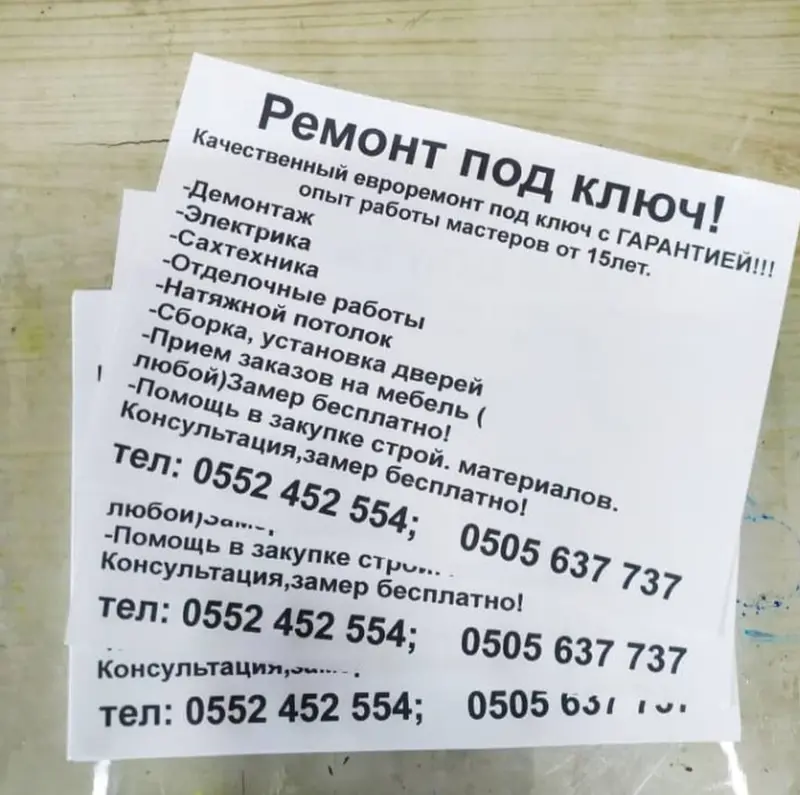 Ремонт под ключ!
Качественный евроремонт под ключ с ГАРАНТИЕЙ!!!
опыт работы мастеров от 15лет.
-Демонтаж
-Электрика
-Сахтехника
-Отделочные работы
-Натяжной потолок
-Сборка, установка дверей
-Прием заказов на мебель (
любой)Замер бесплатно!
-Помощь в закупке строй. материалов.
Консультация,замер бесплатно!
тел: 0552 452 554; 0505 637 737
-Помощь в закупке
Консультация,замер бесплатно!
тел: 0552 452 554; 0505 637 737
Консультация,
тел: 0552 452 554; 0505